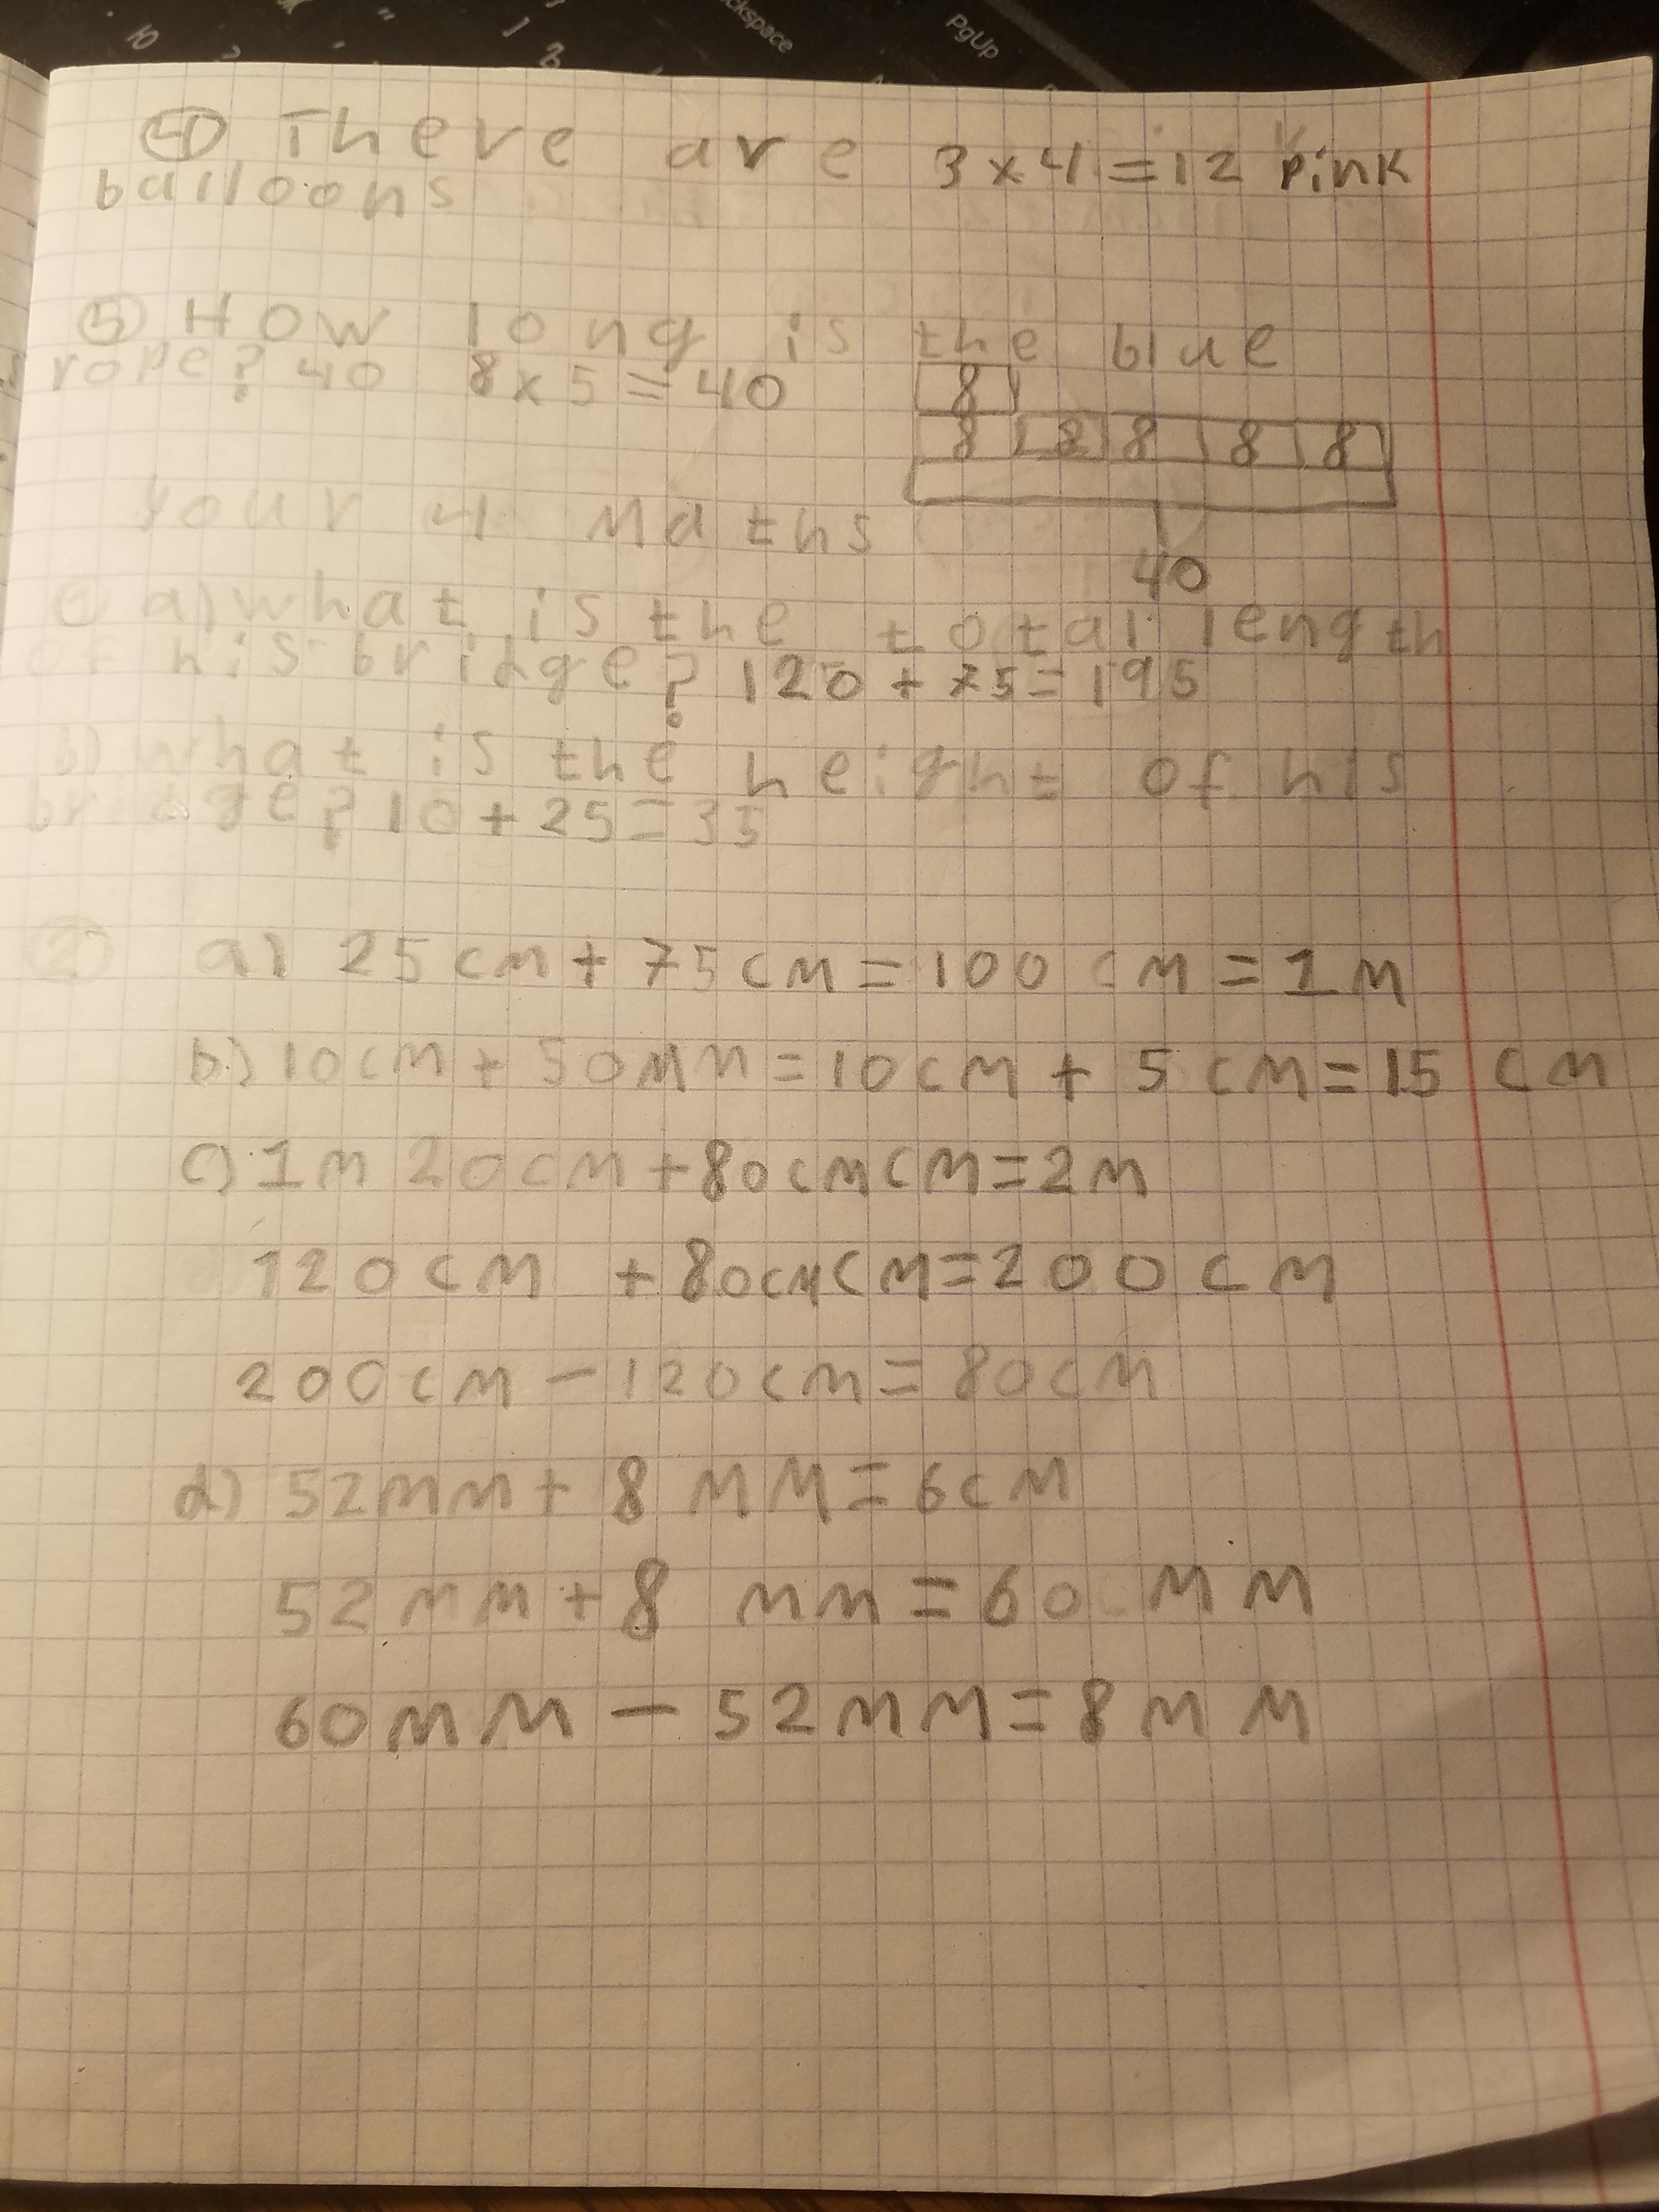 PgUp
④ There are 3 x 4 = 12 pink
balloons
⑤ How long is the blue
rope? 40 8 x 5 = 40
8
8 8 8 8 8
40
your 4 Maths
a) what is the total length
of his bridge? 120 + 75 = 195
b) what is the height of his
bridge? 10 + 25 = 35
② a) 25 cm + 75 cm = 100 cm = 1 m
b) 10 cm + 50 mm = 10 cm + 5 cm = 15 cm
c) 1 m 20 cm + 80 cm cm = 2 m
120 cm + 80 cm cm = 200 cm
200 cm - 120 cm = 80 cm
d) 52 mm + 8 mm = 6 cm
52 mm + 8 mm = 60 mm
60 mm - 52 mm = 8 mm